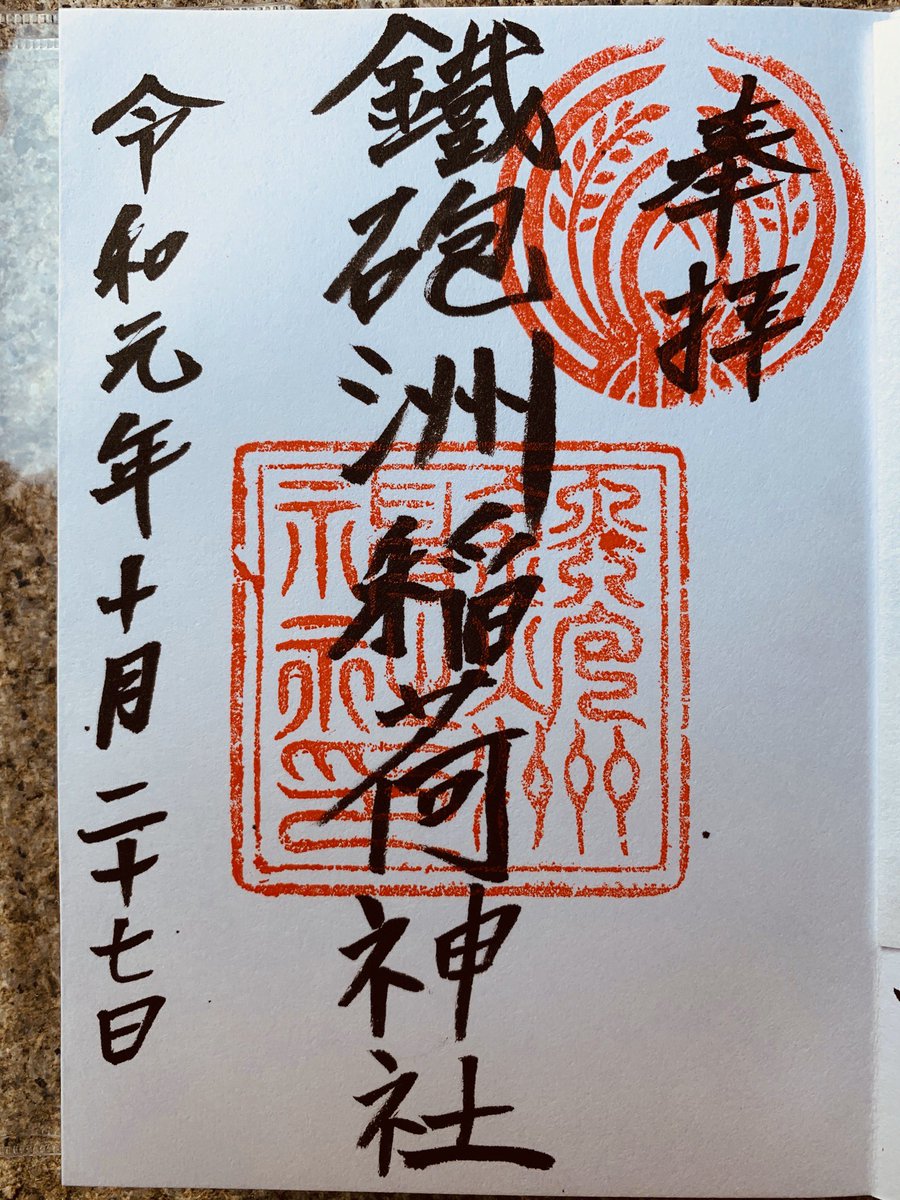 奉拝
鐵砲洲稲荷神社
令和元年十月二十七日